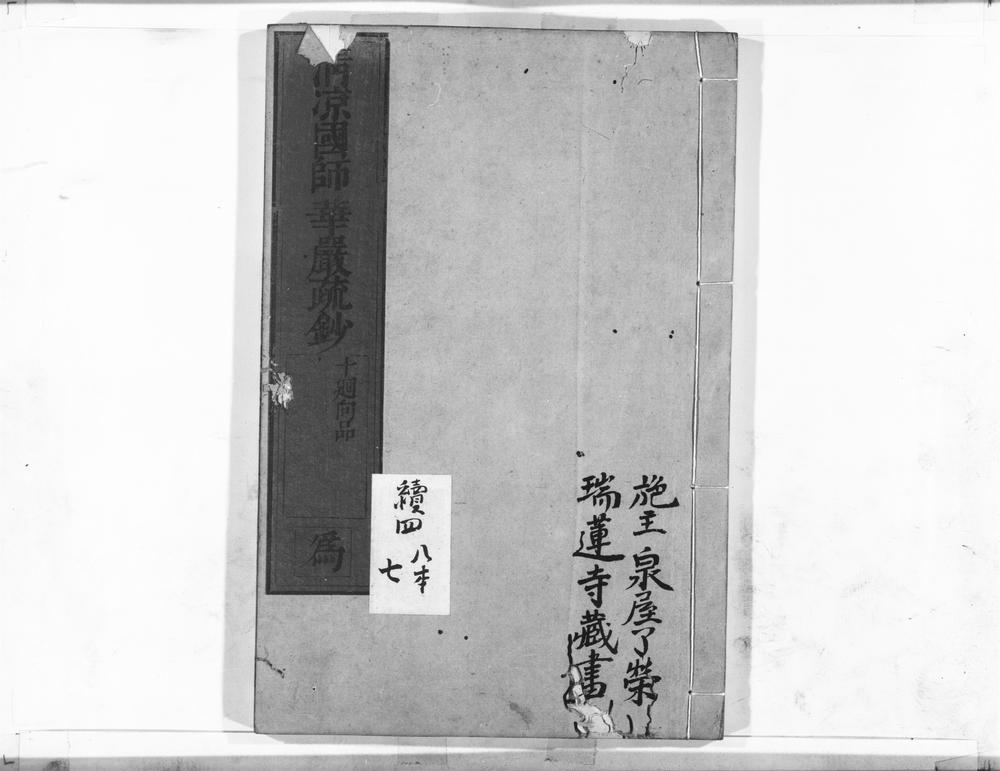 施主泉屋了榮
瑞蓮寺藏書
清凉國師華嚴疏鈔
十廻向品
為
續四
八本
七